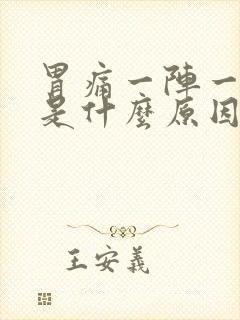 胃痛一陣一
是什麼原因
王安義